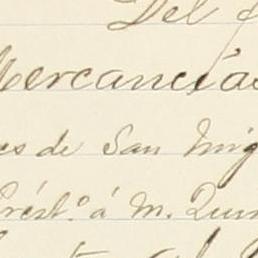 Del f
Mercancías
es de San Mig
Prést.º á M. Quin